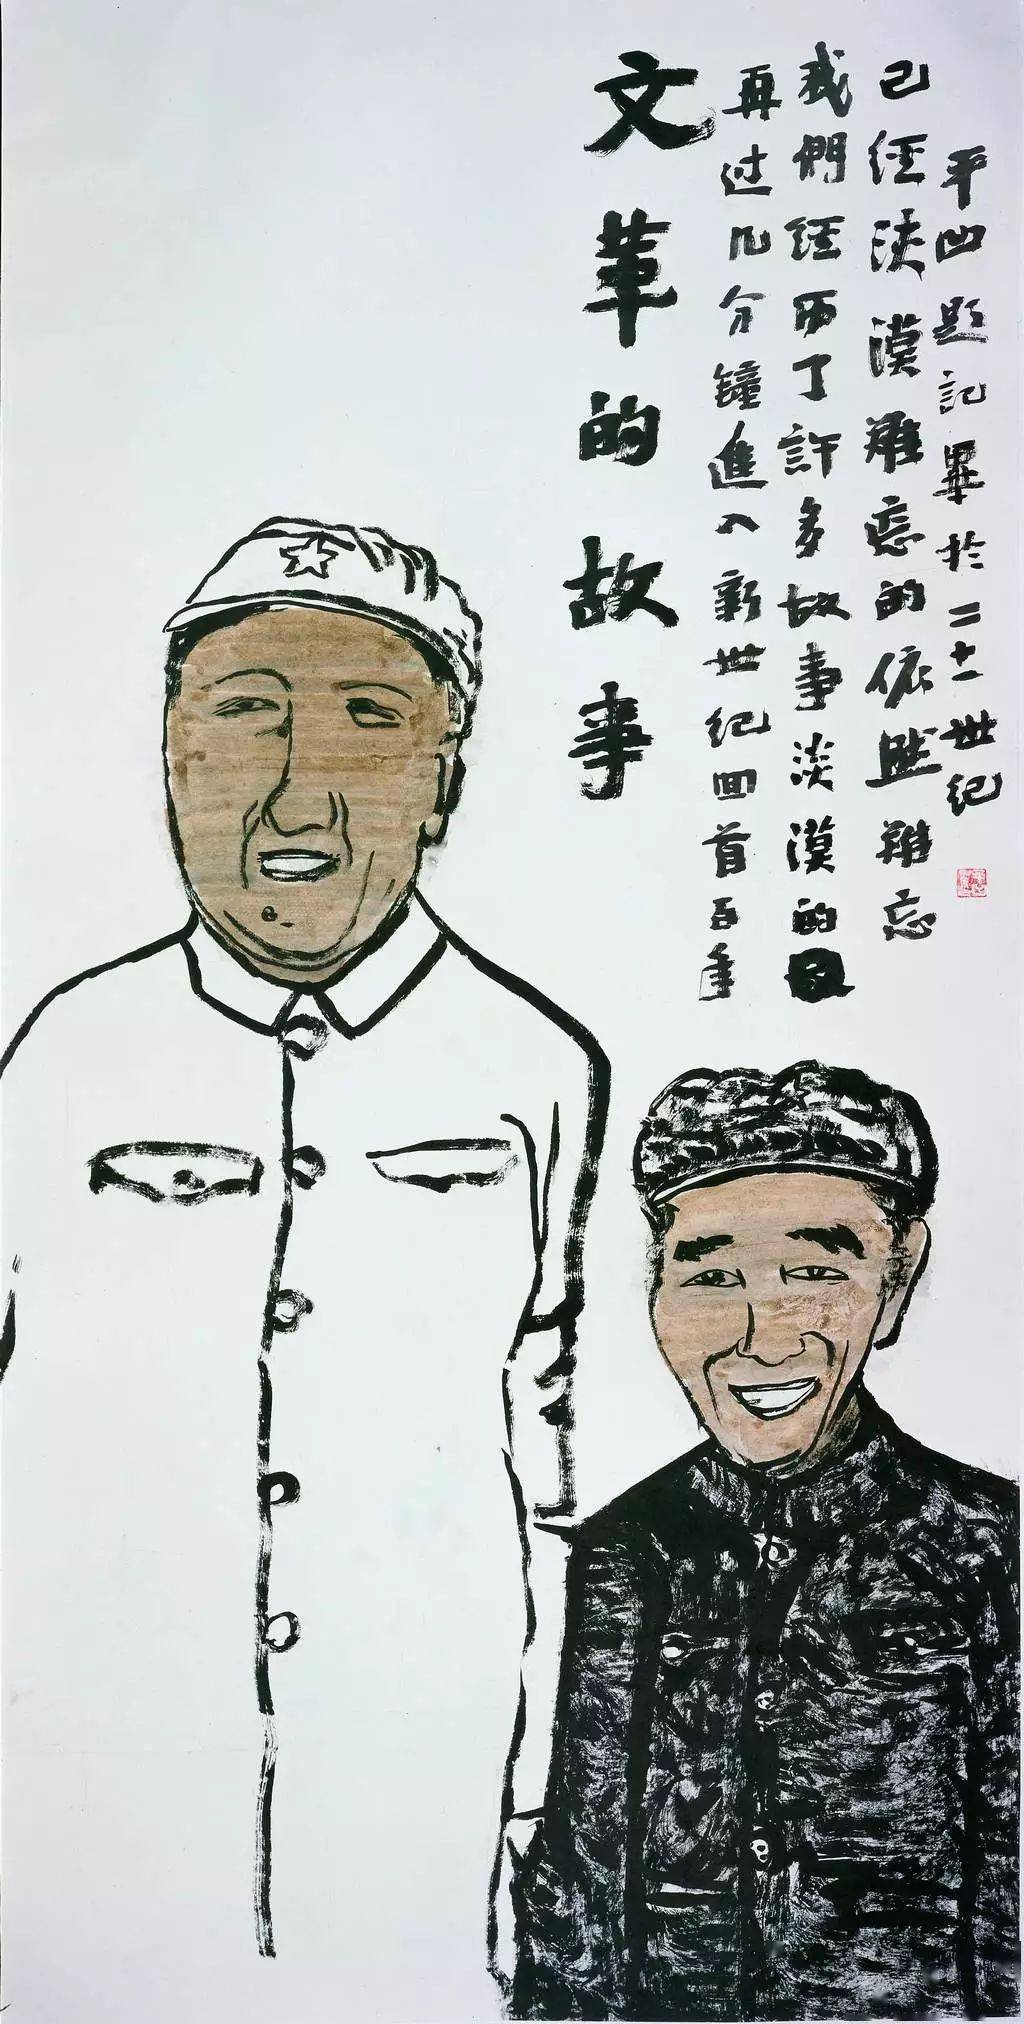 文革的故事
再过几分鐘進入新世纪回首百年
我們经历了許多故事淡漠的
已经淡漠難忘的依然難忘
平凹題記畢於二十一世纪